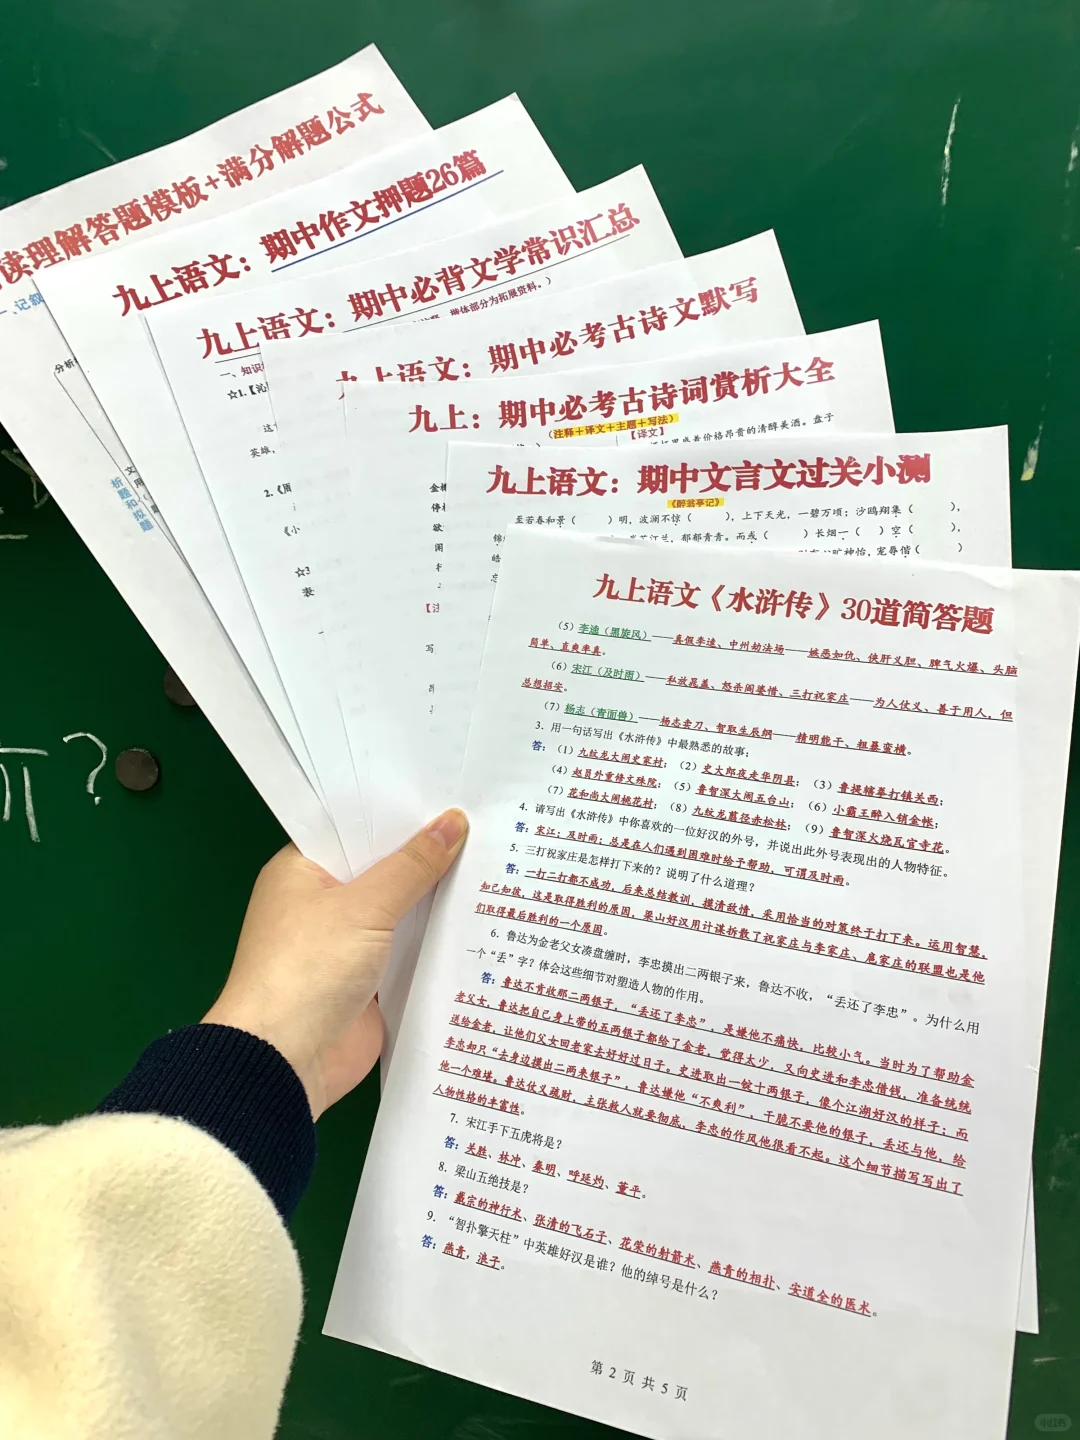 读理解答题模板+满分解题公式
一、记叙
分析
文
用
析题和拟题
九上语文：期中作文押题26篇
九上语文：期中必背文学常识汇总
楷体部分为拓展资料。）
一、知识
☆1.【沁
这
英雄，
2.《雨
《小
☆3
九上语文：期中必考古诗文默写
九上：期中必考古诗词赏析大全
（注释＋译文＋主题＋写法）
【译文】
价格昂贵的清醇美酒。盘子
金
停
欲
闲
写
九上语文：期中文言文过关小测
《醉翁亭记》
至若春和景（ ）明，波澜不惊（ ），上下天光，一碧万顷；沙鸥翔集（ ），
锦 岸芷汀兰，郁郁青青。而或（ ）长烟一（ ）空（ ），
皓 心旷神怡，宠辱偕（ ）
九上语文《水浒传》30道简答题
（5）李逵（黑旋风）——真假李逵、中州劫法场——嫉恶如仇、侠肝义胆、脾气火爆、头脑
简单、直爽率真。
（6）宋江（及时雨）——私放晁盖、怒杀阎婆惜、三打祝家庄——为人仗义、善于用人，但
总想招安。
（7）杨志（青面兽）——杨志卖刀、智取生辰纲——精明能干、粗暴蛮横。
3．用一句话写出《水浒传》中最熟悉的故事；
答：（1）九纹龙大闹史家村；（2）史大郎夜走华阴县；（3）鲁提辖拳打镇关西；
（4）赵员外重修文殊院；（5）鲁智深大闹五台山；（6）小霸王醉入销金帐；
（7）花和尚大闹桃花村；（8）九纹龙翦径赤松林；（9）鲁智深火烧瓦官寺花。
4．请写出《水浒传》中你喜欢的一位好汉的外号，并说出此外号表现出的人物特征。
答：宋江；及时雨；总是在人们遇到困难时给予帮助，可谓及时雨。
5．三打祝家庄是怎样打下来的？说明了什么道理？
答：一打二打都不成功，后来总结教训，摸清敌情，采用恰当的对策终于打下来。运用智慧，
知己知彼，这是取得胜利的原因，梁山好汉用计谋拆散了祝家庄与李家庄、扈家庄的联盟也是他
们取得最后胜利的一个原因。
6．鲁达为金老父女凑盘缠时，李忠摸出二两银子来，鲁达不收，“丢还了李忠”。为什么用
一个“丢”字？体会这些细节对塑造人物的作用。
答：鲁达不肯收那二两银子，“丢还了李忠”，是嫌他不痛快，比较小气。当时为了帮助金
老父女，鲁达把自己身上带的五两银子都给了金老，觉得太少，又向史进和李忠借钱，准备统统
送给金老，让他们父女回老家去好好过日子。史进取出一锭十两银子，像个江湖好汉的样子；而
李忠却只“去身边摸出二两来银子”，鲁达嫌他“不爽利”，干脆不要他的银子，丢还与他，给
他一个难堪。鲁达仗义疏财，主张救人就要彻底，李忠的作风他很看不起。这个细节描写写出了
人物性格的丰富性。
7．宋江手下五虎将是？
答：关胜、林冲、秦明、呼延灼、董平。
8．梁山五绝技是？
答：戴宗的神行术、张清的飞石子、花荣的射箭术、燕青的相扑、安道全的医术。
9．“智扑擎天柱”中英雄好汉是谁？他的绰号是什么？
答：燕青，浪子。
第 2 页 共 5 页